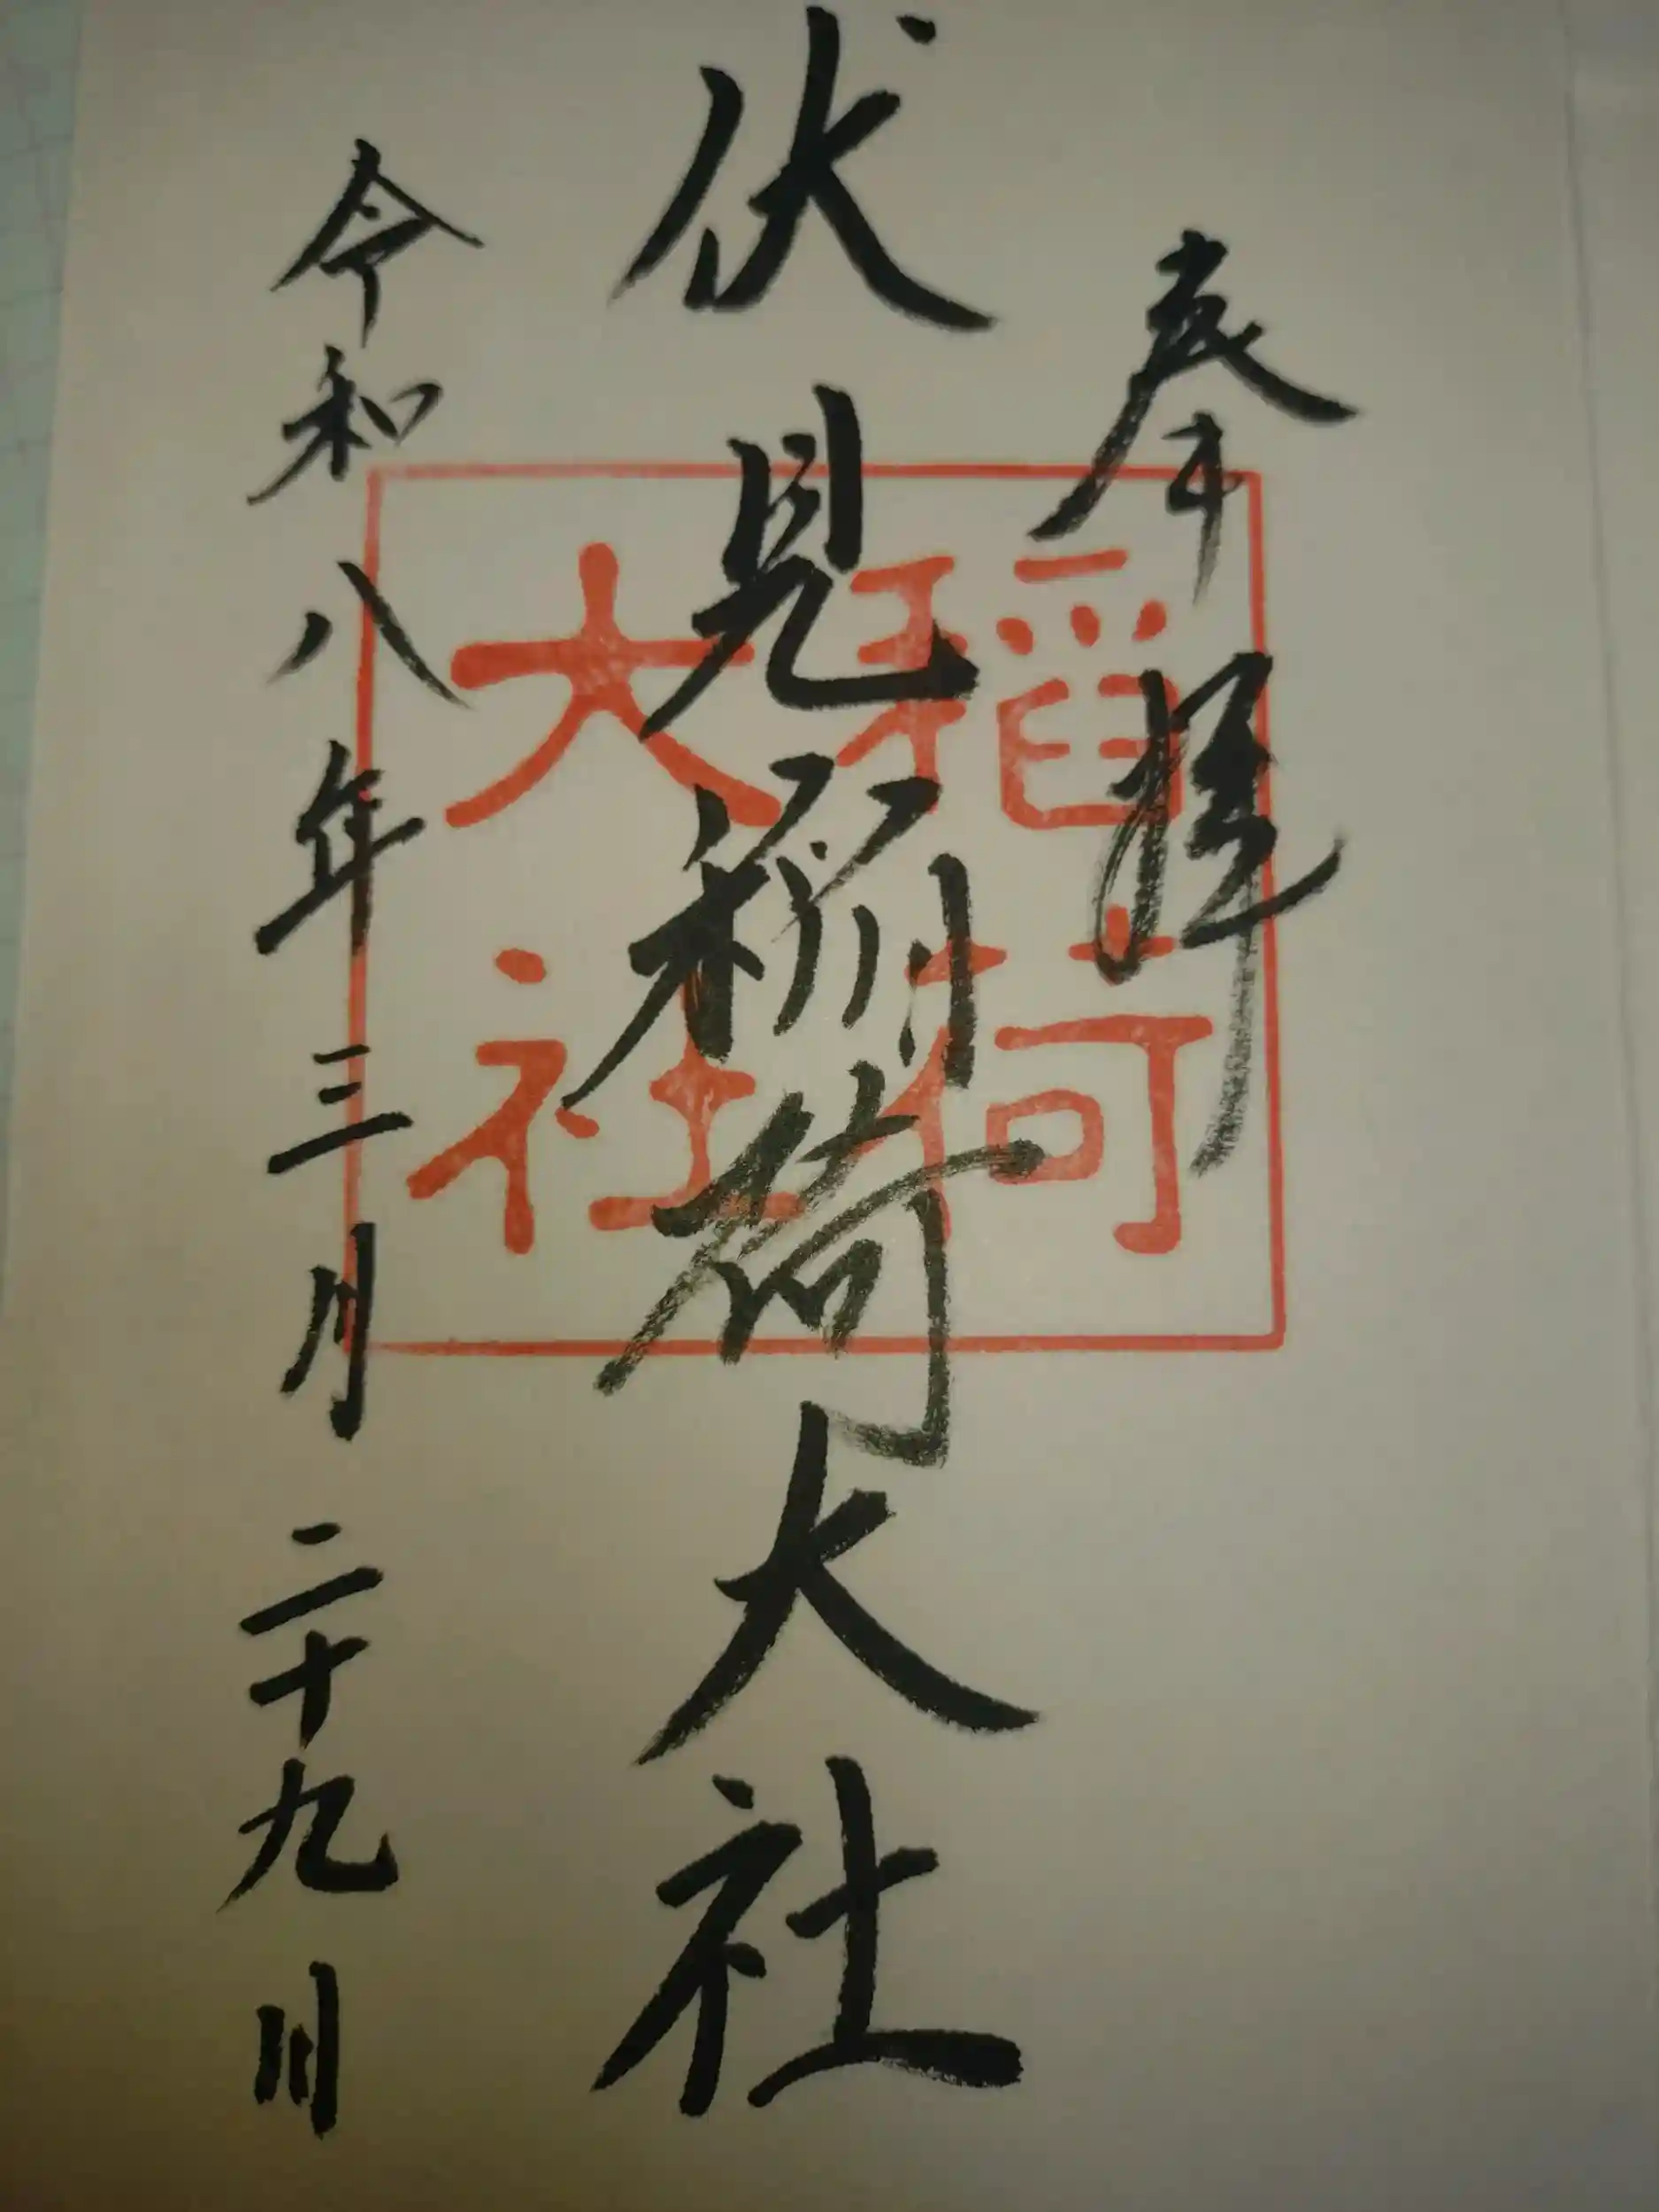 奉拝
伏見稲荷大社
令和八年三月二十九日
稲荷
大社